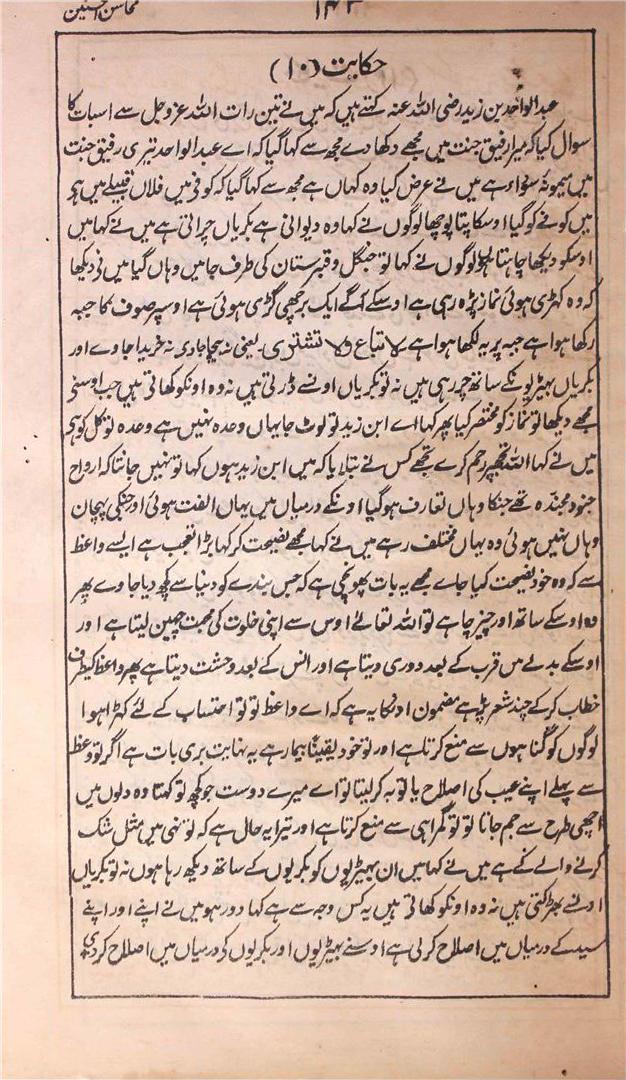 محاسن المحسنین
۱۴۳
حکایت (۱۰)
عبدالواحد بن زید رضی اللہ عنہ کہتے ہیں کہ میں نے تین رات اللہ عزوجل سے اسبات کا
سوال کیا کہ میرا رفیق جنت میں مجھے دکھا دے مجھ سے کہا گیا کہ اے عبدالواحد تیری رفیق جنت
میں میمونۂ سوداء ہے میں نے عرض کیا وہ کہاں ہے مجھ سے کہا گیا کہ کوفی میں فلاں قبیلے میں ہی
میں کوفے کو گیا اوسکا پتا پوچھا لوگوں نے کہا وہ دیوانی ہے بکریاں چراتی ہے میں نے کہا میں
اوسکو دیکھا چاہتا ہوں لوگوں نے کہا تو جنگل و قبرستان کی طرف جا میں وہاں گیا میں نی دیکھا
کہ وہ کہڑی ہوئی نماز پڑہ رہی ہے اوسکے آگے ایک برچھی گڑی ہوئی ہے اوسپر صوف کا جبہ
رکھا ہوا ہے جبہ پر یہ لکھا ہوا ہے لا تباع ولا تشتری ۔ یعنی نہ بیچا جاوی نہ خریدا جاوے اور
بکریاں بھیڑیونکے ساتھ چر رہی ہیں نہ تو بکریاں اونسے ڈرتی ہیں نہ وہ اونکو کھاتی ہیں جب اوسنی
مجھے دیکھا تو نماز کو مختصر کیا پھر کہا اے ابن زید تو لوٹ جا یہاں وعدہ نہیں ہے وعدہ تو کل کو ہی
میں نے کہا اللہ تجھپر رحم کرے تجھے کس نے بتلایا کہ میں ابن زید ہوں کہا تو نہیں جانتا کہ ارواح
جنود مجندہ تھے جنکا وہاں تعارف ہوگیا اونکے درمیاں میں یہاں الفت ہوئی اور جنکی پہچان
وہاں نہیں ہوئی وہ یہاں مختلف رہے میں نے کہا مجھے نصیحت کر کہا بڑا تعجب ہے ایسے واعظ
سے کہ وہ خود نصیحت کیا جاے مجھے یہ بات پھونچی ہے کہ جس بندے کو دنیا سے کچھ دیا جاوے پھر
وہ اوسکے ساتھ اور چیز چاہے تو اللہ تعالے اوس سے اپنی خلوت کی محبت چھین لیتا ہے اور
اوسکے بدلے میں قرب کے بعد دوری دیتا ہے اور انس کے بعد وحشت دیتا ہے پھر واعظ کیطرف
خطاب کرکے چند شعر پڑہے مضمون اونکا یہ ہے کہ اے واعظ تو تو احتساب کے لئے کھڑا ہوا
لوگوں کو گناہوں سے منع کرتا ہے اور تو خود یقیناً بیمار ہے یہ نہایت بری بات ہے اگر تو وعظ
سے پہلے اپنے عیب کی اصلاح یا توبہ کرلیتا تو اے میرے دوست جو کچھ تو کہتا وہ دلوں میں
اچھی طرح سے جم جاتا تو تو گمراہی سے منع کرتا ہے اور تیرا یہ حال ہے کہ تو نہی میں مثل شک
کرنے والے کے ہے میں نے کہا میں ان بھیڑیوں کو بکریوں کے ساتھ دیکھ رہا ہوں نہ تو بکریاں
اونسے بھڑکتی ہیں نہ وہ اونکو کھاتی ہیں یہ کس وجہ سے ہے کہا دور ہو میں نے اپنے اور اپنے
سید کے درمیاں میں اصلاح کرلی ہے اوسنے بھیڑیوں اور بکریوں کی درمیاں میں اصلاح کردی